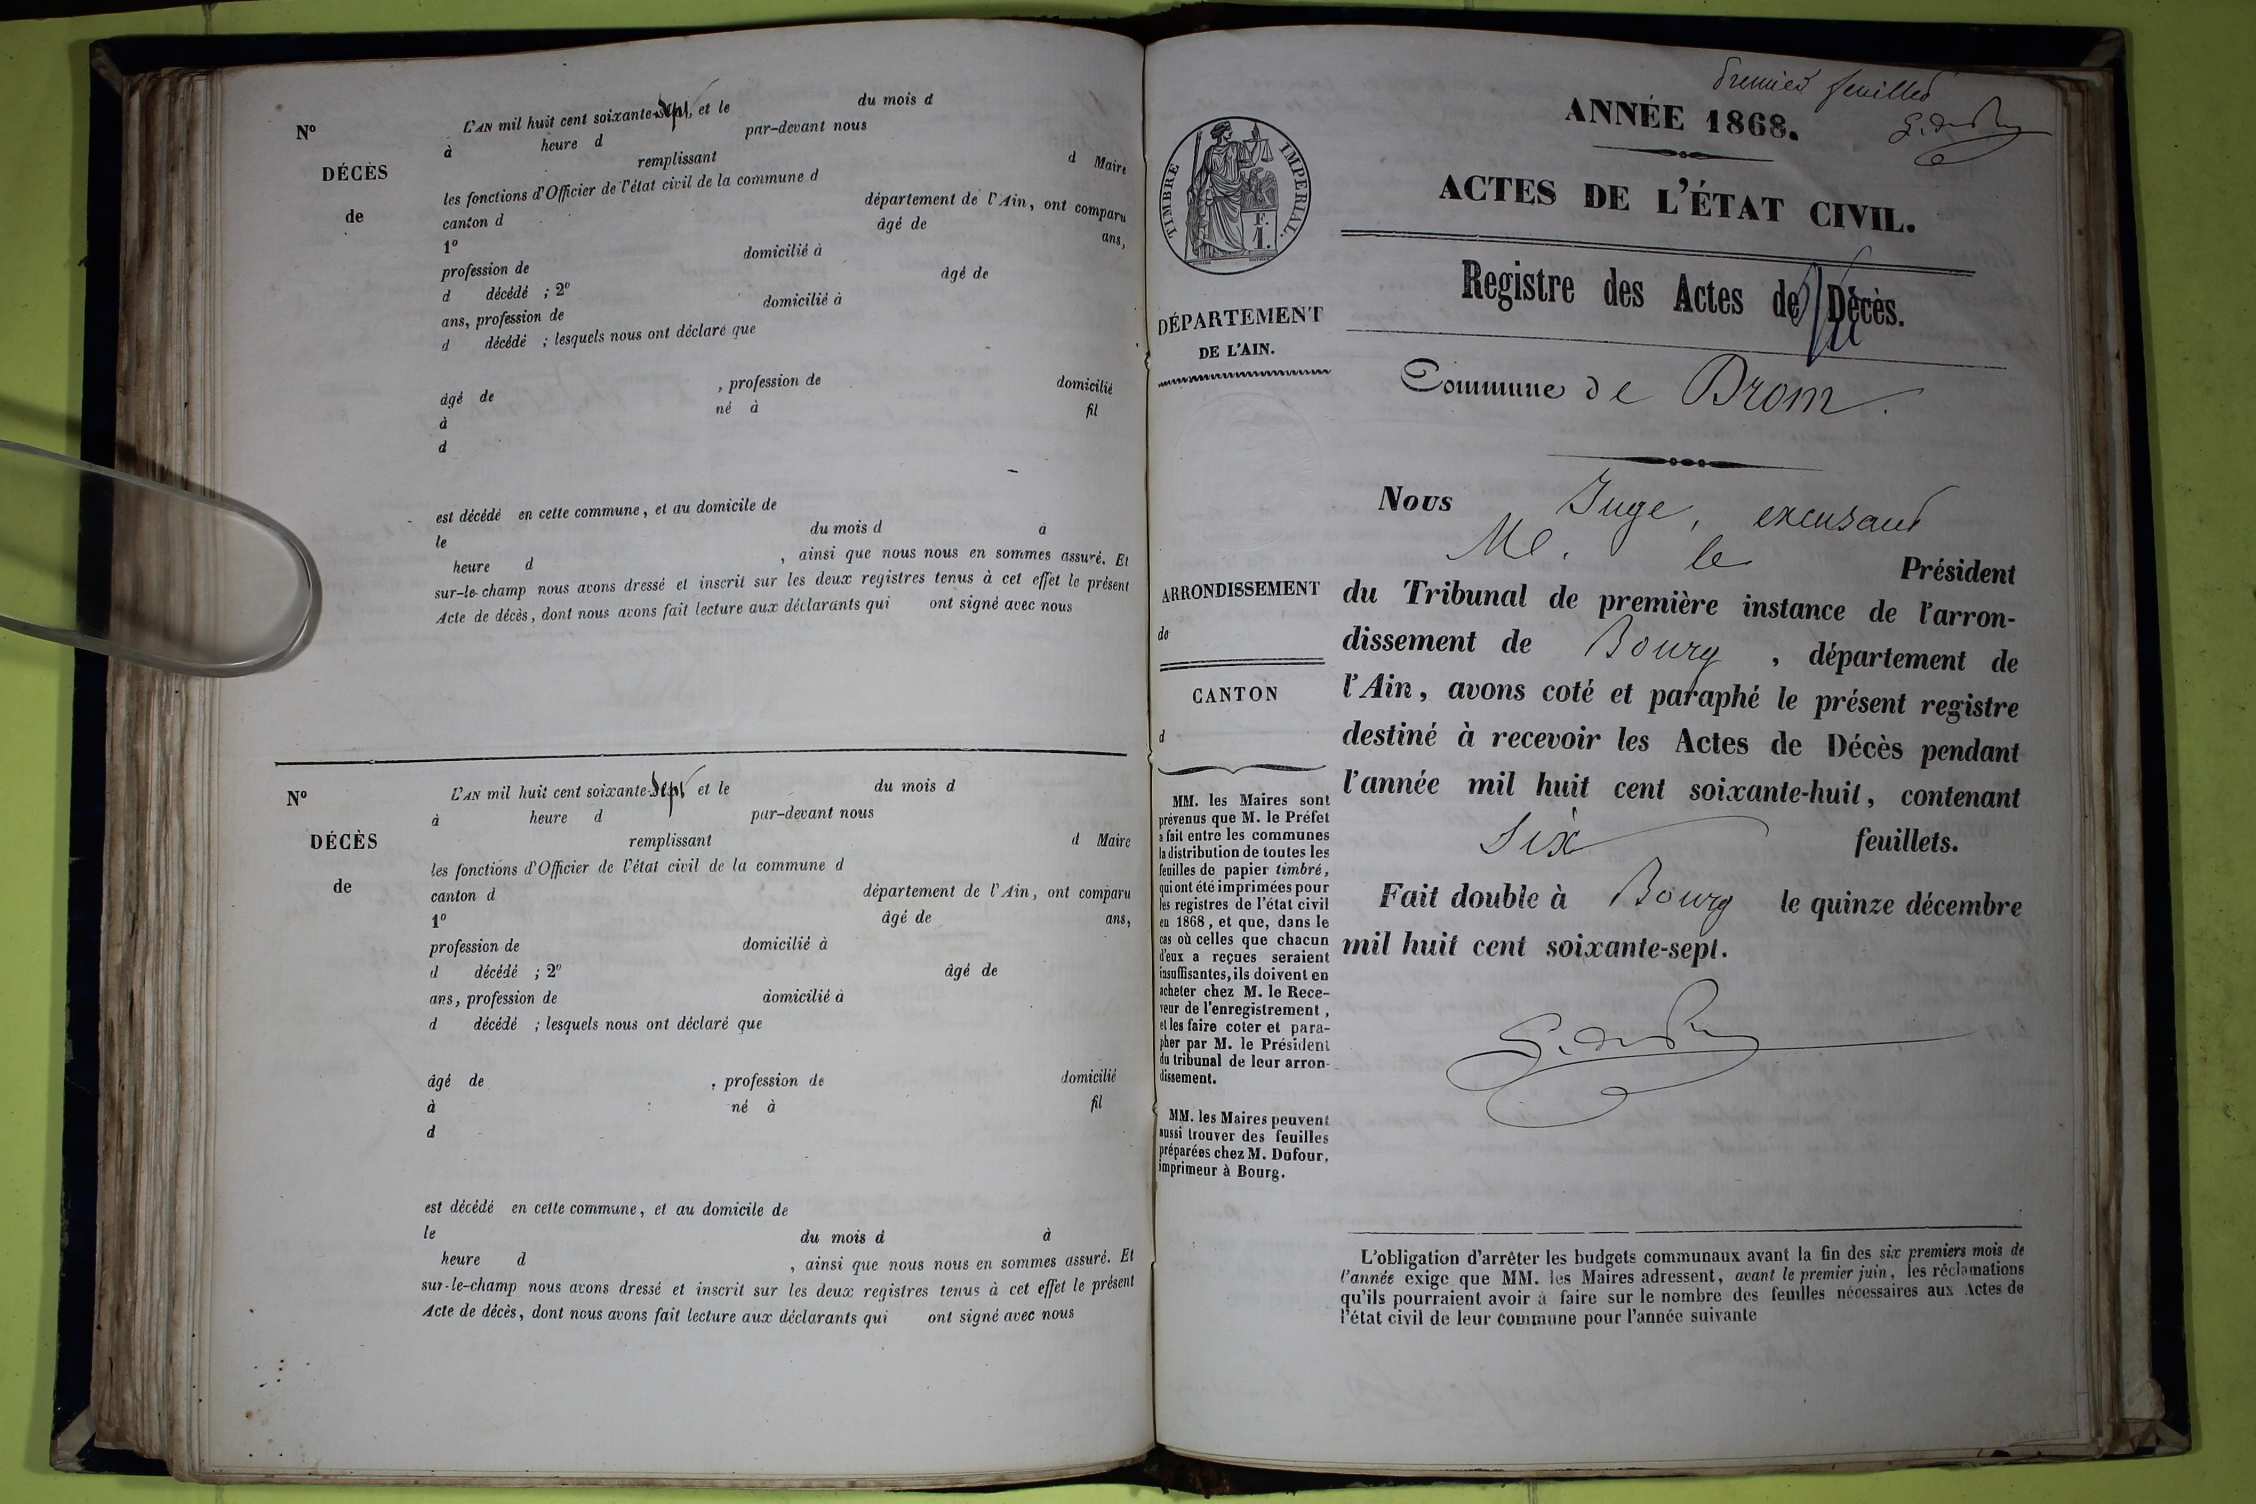 N° L'AN mil huit cent soixante-sept, et le du mois d
à heure d par-devant nous
DÉCÈS remplissant d Maire
les fonctions d'Officier de l'état civil de la commune d
de canton d département de l'Ain, ont comparu
1° âgé de ans,
profession de domicilié à
d décédé ; 2° âgé de
ans, profession de domicilié à
d décédé ; lesquels nous ont déclaré que
âgé de , profession de domicilié
à né à fil
d
est décédé en cette commune, et au domicile de
le du mois d à
heure d , ainsi que nous nous en sommes assuré. Et
sur-le-champ nous avons dressé et inscrit sur les deux registres tenus à cet effet le présent
Acte de décès, dont nous avons fait lecture aux déclarants qui ont signé avec nous
N° L'AN mil huit cent soixante-sept et le du mois d
à heure d par-devant nous
DÉCÈS remplissant d Maire
les fonctions d'Officier de l'état civil de la commune d
de canton d département de l'Ain, ont comparu
1° âgé de ans,
profession de domicilié à
d décédé ; 2° âgé de
ans, profession de domicilié à
d décédé ; lesquels nous ont déclaré que
âgé de , profession de domicilié
à né à fil
d
est décédé en cette commune, et au domicile de
le du mois d à
heure d , ainsi que nous nous en sommes assuré. Et
sur-le-champ nous avons dressé et inscrit sur les deux registres tenus à cet effet le présent
Acte de décès, dont nous avons fait lecture aux déclarants qui ont signé avec nous
TIMBRE IMPERIAL.
F.
1.
DÉPARTEMENT
DE L'AIN.
ARRONDISSEMENT
de
CANTON
d
MM. les Maires sont
prévenus que M. le Préfet
a fait entre les communes
la distribution de toutes les
feuilles de papier timbré,
qui ont été imprimées pour
les registres de l'état civil
en 1868, et que, dans le
cas où celles que chacun
d'eux a reçues seraient
insuffisantes, ils doivent en
acheter chez M. le Rece-
veur de l'enregistrement,
et les faire coter et para-
pher par M. le Président
du tribunal de leur arron-
dissement.
MM. les Maires peuvent
aussi trouver des feuilles
préparées chez M. Dufour,
imprimeur à Bourg.
Premier feuillet
ANNÉE 1868.
ACTES DE L'ÉTAT CIVIL.
Registre des Actes de Décès.
Commune de Drom.
Nous Juge, excusant
M. le Président
du Tribunal de première instance de l'arron-
dissement de Bourg, département de
l'Ain, avons coté et paraphé le présent registre
destiné à recevoir les Actes de Décès pendant
l'année mil huit cent soixante-huit, contenant
six feuillets.
Fait double à Bourg le quinze décembre
mil huit cent soixante-sept.
L'obligation d'arrêter les budgets communaux avant la fin des six premiers mois de
l'année exige que MM. les Maires adressent, avant le premier juin, les réclamations
qu'ils pourraient avoir à faire sur le nombre des feuilles nécessaires aux Actes de
l'état civil de leur commune pour l'année suivante